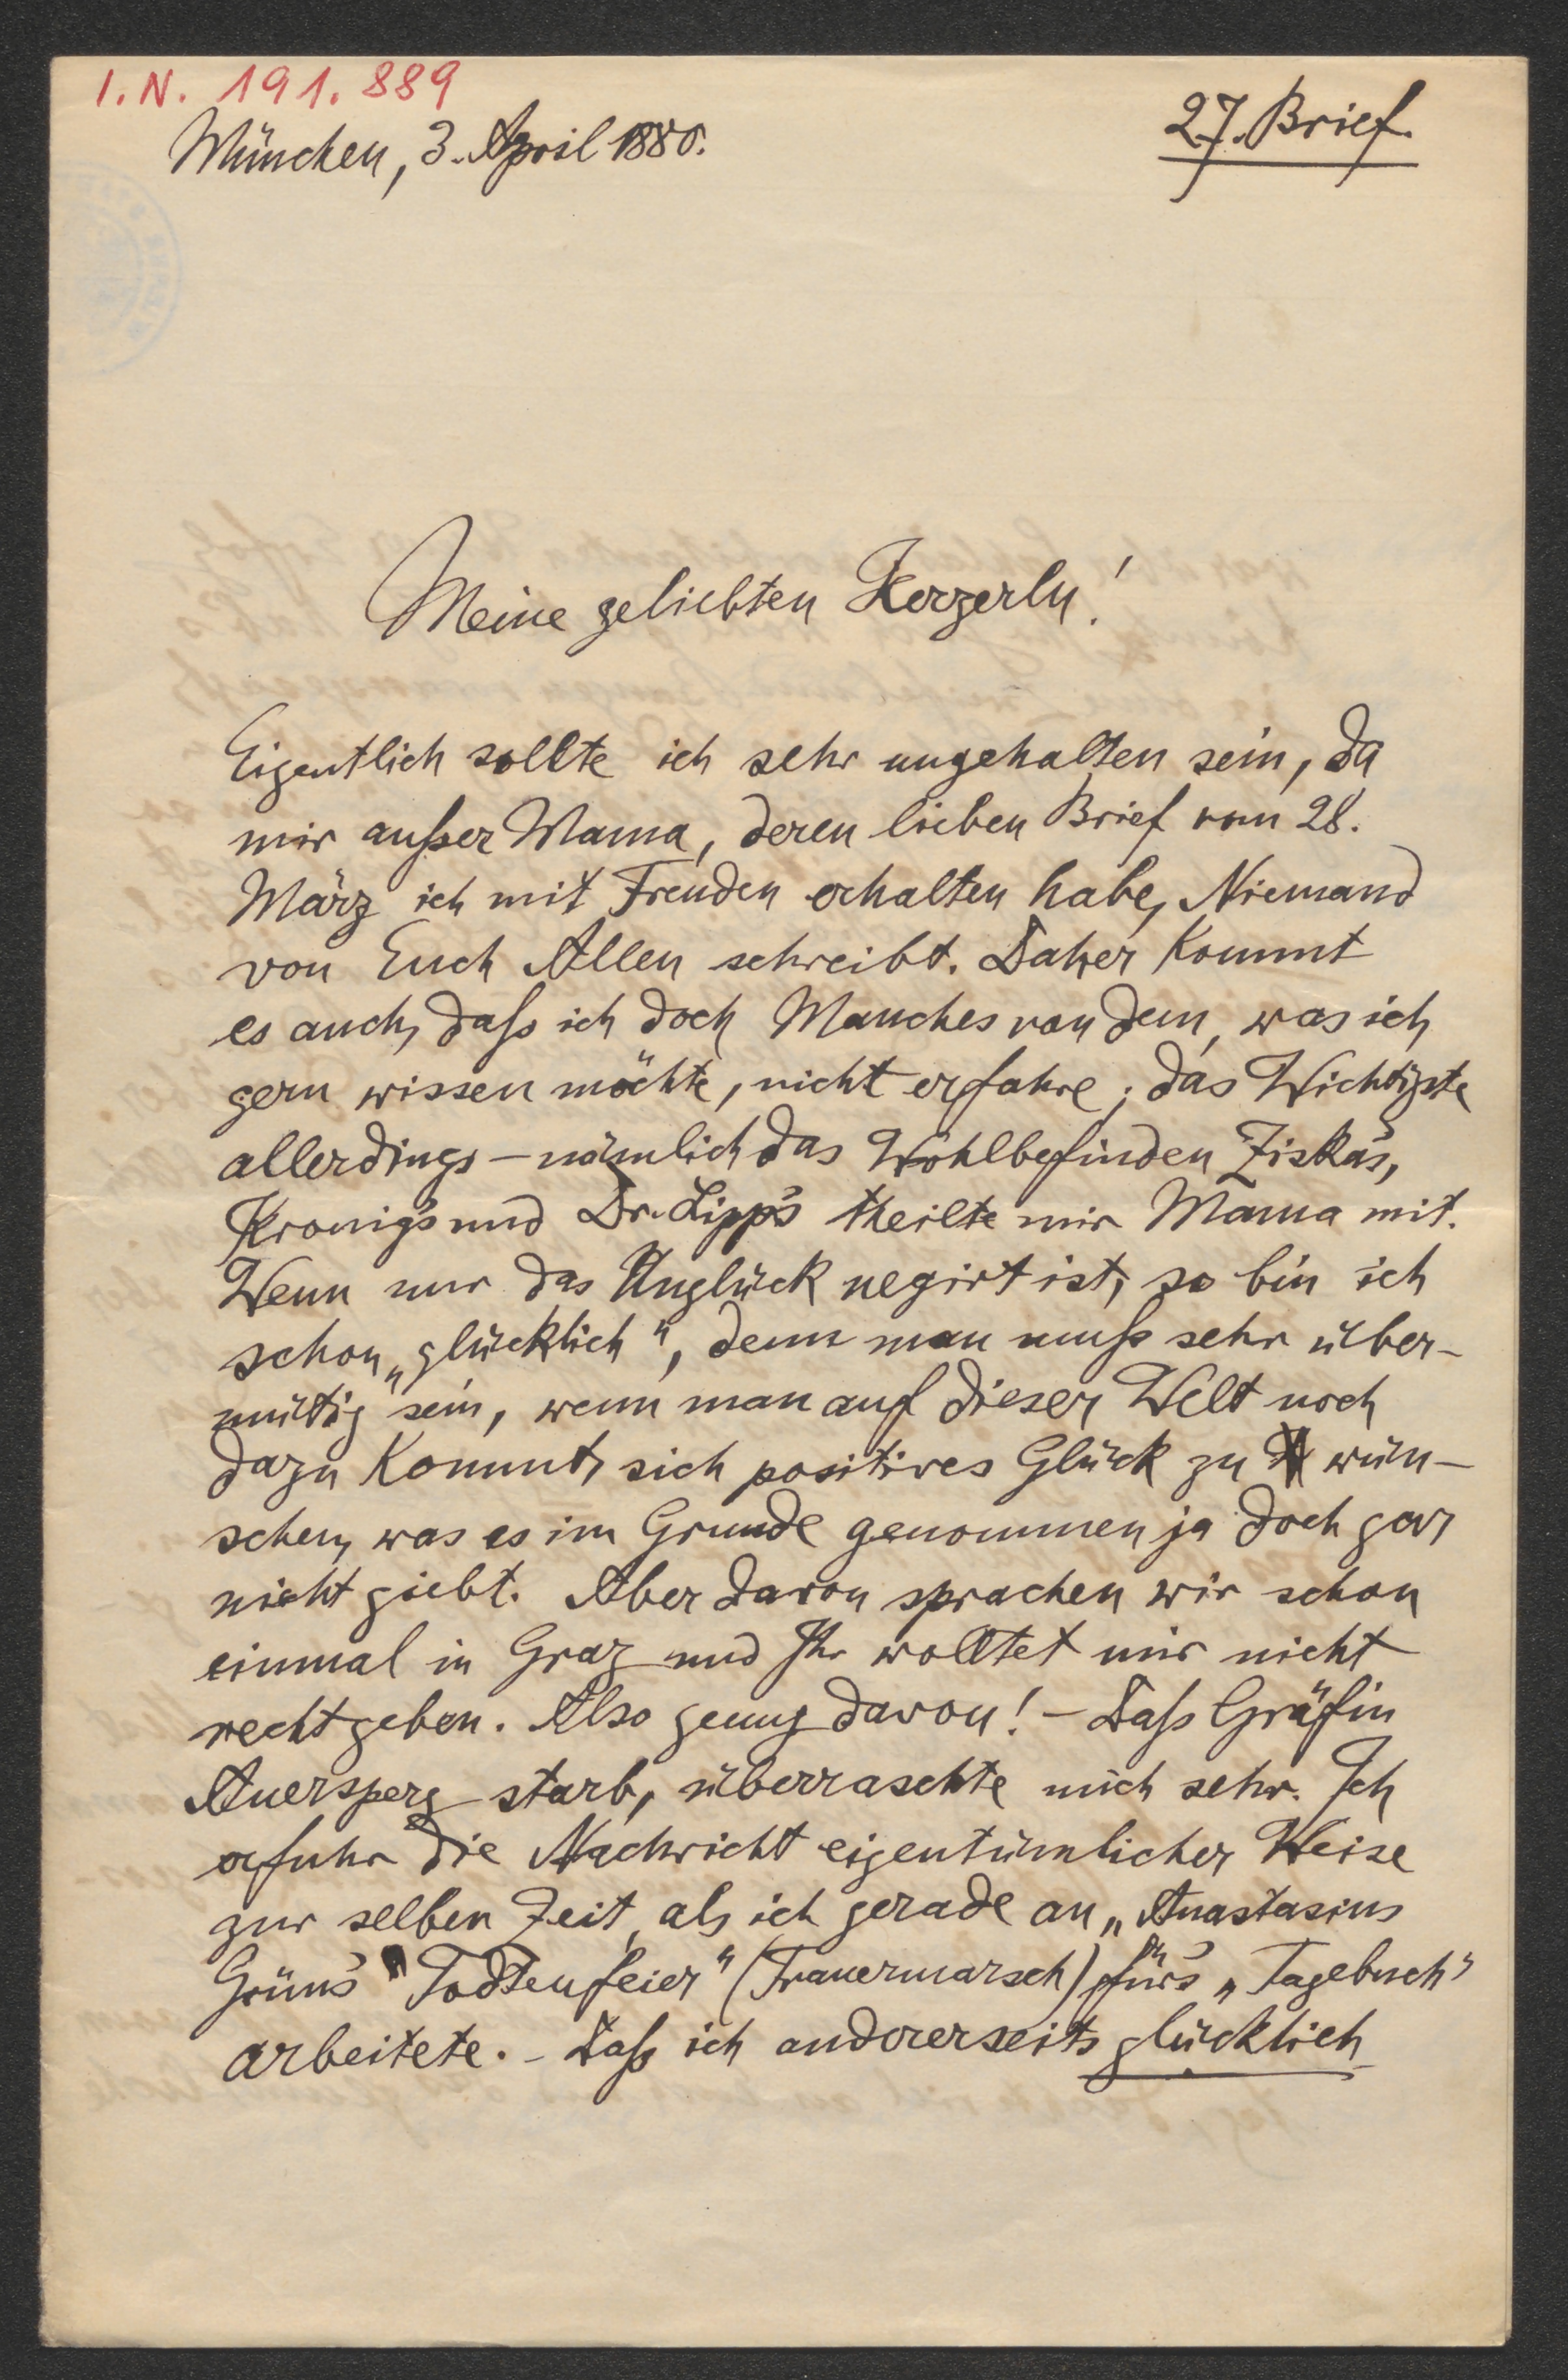 I.N. 191.889
27. Brief.
München, 3. April 1880.
Meine geliebten Herzerln!
Eigentlich sollte ich sehr ungehalten sein, da
mir außer Mama, deren lieben Brief vom 28.
März ich mit Freuden erhalten habe, Niemand
von Euch Allen schreibt. Daher kommt
es auch, daß ich doch Manches von dem, was ich
gern wissen möchte, nicht erfahre; das Wichtigste
allerdings – nämlich das Wohlbefinden Ziska's,
Kronig's und Dr. Lipp's theilte mir Mama mit.
Wenn nur das Unglück negirt ist, so bin ich
schon „glücklich“, denn man muß sehr über-
mütig sein, wenn man auf dieser Welt noch
dazu kommt, sich positives Glück zu wün-
schen, was es im Grunde genommen ja doch gar
nicht giebt. Aber davon sprachen wir schon
einmal in Graz und Ihr wolltet mir nicht
recht geben. Also genug davon! – Daß Gräfin
Auersperg starb, überraschte mich sehr. Ich
erfuhr die Nachricht eigentümlicher Weise
zur selben Zeit, als ich gerade an „Anastasius
Grün's Todtenfeier“ (Trauermarsch) für's „Tagebuch“
arbeitete. – Daß ich andererseits glücklich